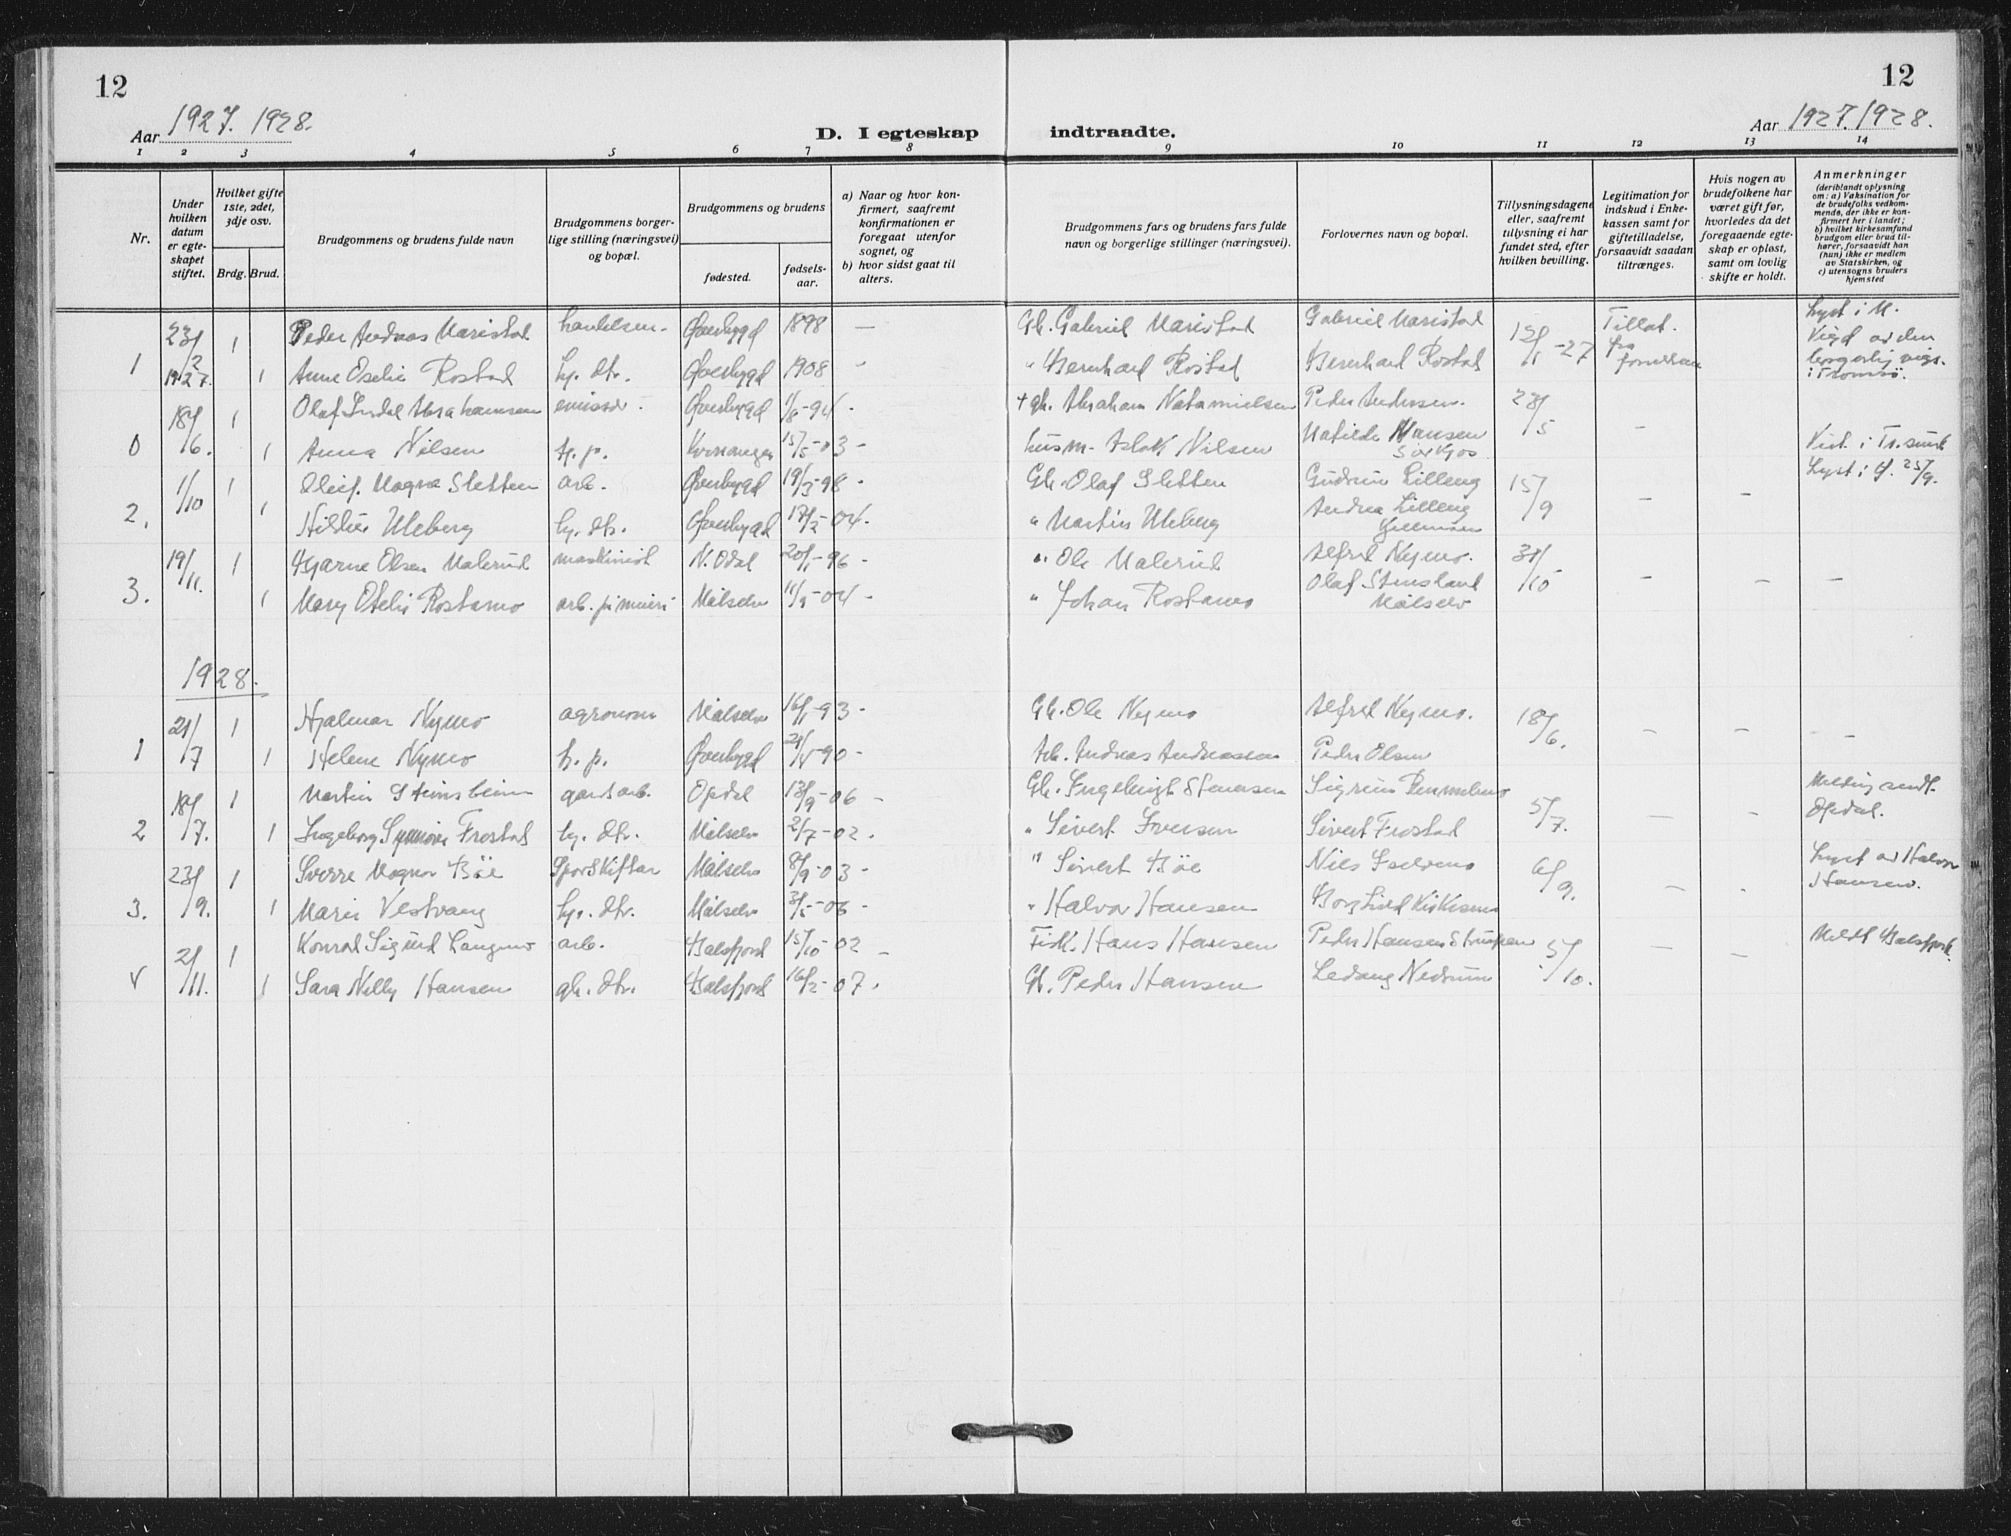 12
12
Aar 1927. 1928.
D. I egteskap indtraadte.
Aar 1927. 1928.
1 2 3 4 5 6 7 8 9 10 11 12 13 14
Nr.
Under hvilken datum er egteskapet stiftet.
Hvilket gifte 1ste, 2det, 3dje osv.
Brdg. Brud.
Brudgommens og brudens fulde navn
Brudgommens borgerlige stilling (næringsvei) og bopæl.
Brudgommens og brudens
fødested.
fødselsaar.
a) Naar og hvor konfirmert, saafremt konfirmationen er foregaat utenfor sognet, og
b) hvor sidst gaat til alters.
Brudgommens fars og brudens fars fulde navn og borgerlige stillinger (næringsvei).
Forlovernes navn og bopæl.
Tillysningsdagene eller, saafremt tullysning ei har fundet sted, efter hvilken bevilling.
Legitimation for indskud i Enkekassen samt for giftetilladelse, forsaavidt saadan tiltrænges.
Hvis nogen av brudefolkene har været gift før, hvorledes da det foregaaende egteskap er opløst, samt om lovlig skifte er holdt.
Anmerkninger
(deriblandt oplysning om: a) Vaksination for de brudefolks vedkommende, der ikke er konfirmert her i landet; b) hvilket kirkesamfund brudgom eller brud tilhører, forsaavidt han (hun) ikke er medlem av Statskirken, og c) utensogns bruders hjemsted
23/2 1 Peder Andreas Maristad handelsm. Øverbygd 1898 — Gb. Gabriel Maristad Gabriel Maristad 12/1-27 Tillat. fra Lyst i M.
1 1927. 1 Anne Oselie Rostad hj. dtr. Øverbygd 1908 - " Bernhard Rostad Bernhard Rostad Viegd av den borgerlig vigs. i Tromsø.
18/6. 1 Olaf Abrahamsen emissær. Øverbygd 1/8-94 - + gb. Abraham Natanielsen Peder Andersen. 28/5 -
0 1 Anna Nilsen hj. p. Kvænangen 15/5-03 - husm. Aslak Nilsen Matilde Hansen
1/10 1 Oleif Magne Sletten arb. Øverbygd 19/3-98 - Gb. Olaf Sletten Gudrun Lilleng 15/9 - - Lyst i 25/9.
2. 1 Uleberg hj. dtr. Øverbygd 17/2-04. " Martin Uleberg Andrea Lilleng
19/11. 1 Bjarne Olsen Malerud maskinist N. Odal 20/1-96 - " Ole Malerud Alfred Nymo. 31/10 - - -
3. 1 Mary Otelie Rostamo arb. på meieri Målselv 11/9-04 - " Johan Rostamo Olaf Stensland Målselv
1928.
21/7 1 Hjalmar Nymo agronom Målselv 16/1-93 - Gb. Ole Nymo Alfred Nymo. 18/6. - - -
1 1 Helene Nymo h. p. Øverbygd 21/4-90 - Arb. Andreas Andreassen Peder Olsen
18/7. 1 Martin gardsarb. Opdal 13/9-06 - Gb. Ingebrigt Stenersen Sigrun 5/7. - - Melding sendt Opdal.
2 1 Ingeborg Synnøve Frostad hj. dtr. Målselv 2/7-02. " Sivert Iversen Sivert Frostad
23/9. 1 Sverre Magnor Bøe Sporskifter Målselv 8/9-03 - " Sivert Bøe Nils 6/9. - - Lyst av Halvor Hansen.
3. 1 Marie Vestvang hj. dtr. Målselv 3/5-06 - " Halvor Hansen Borghild Kirkesmo
21/11. 1 Konrad Sigurd Langmo arb. Balsfjord 15/10-02 - Fisk. Hans Hansen Peder Hansen 5/10. - - Meldt Balsfjord.
4 1 Sara Nelly Hansen gb. dtr. Balsfjord 16/2-07. Gb. Peder Hansen Ledang Nedrum